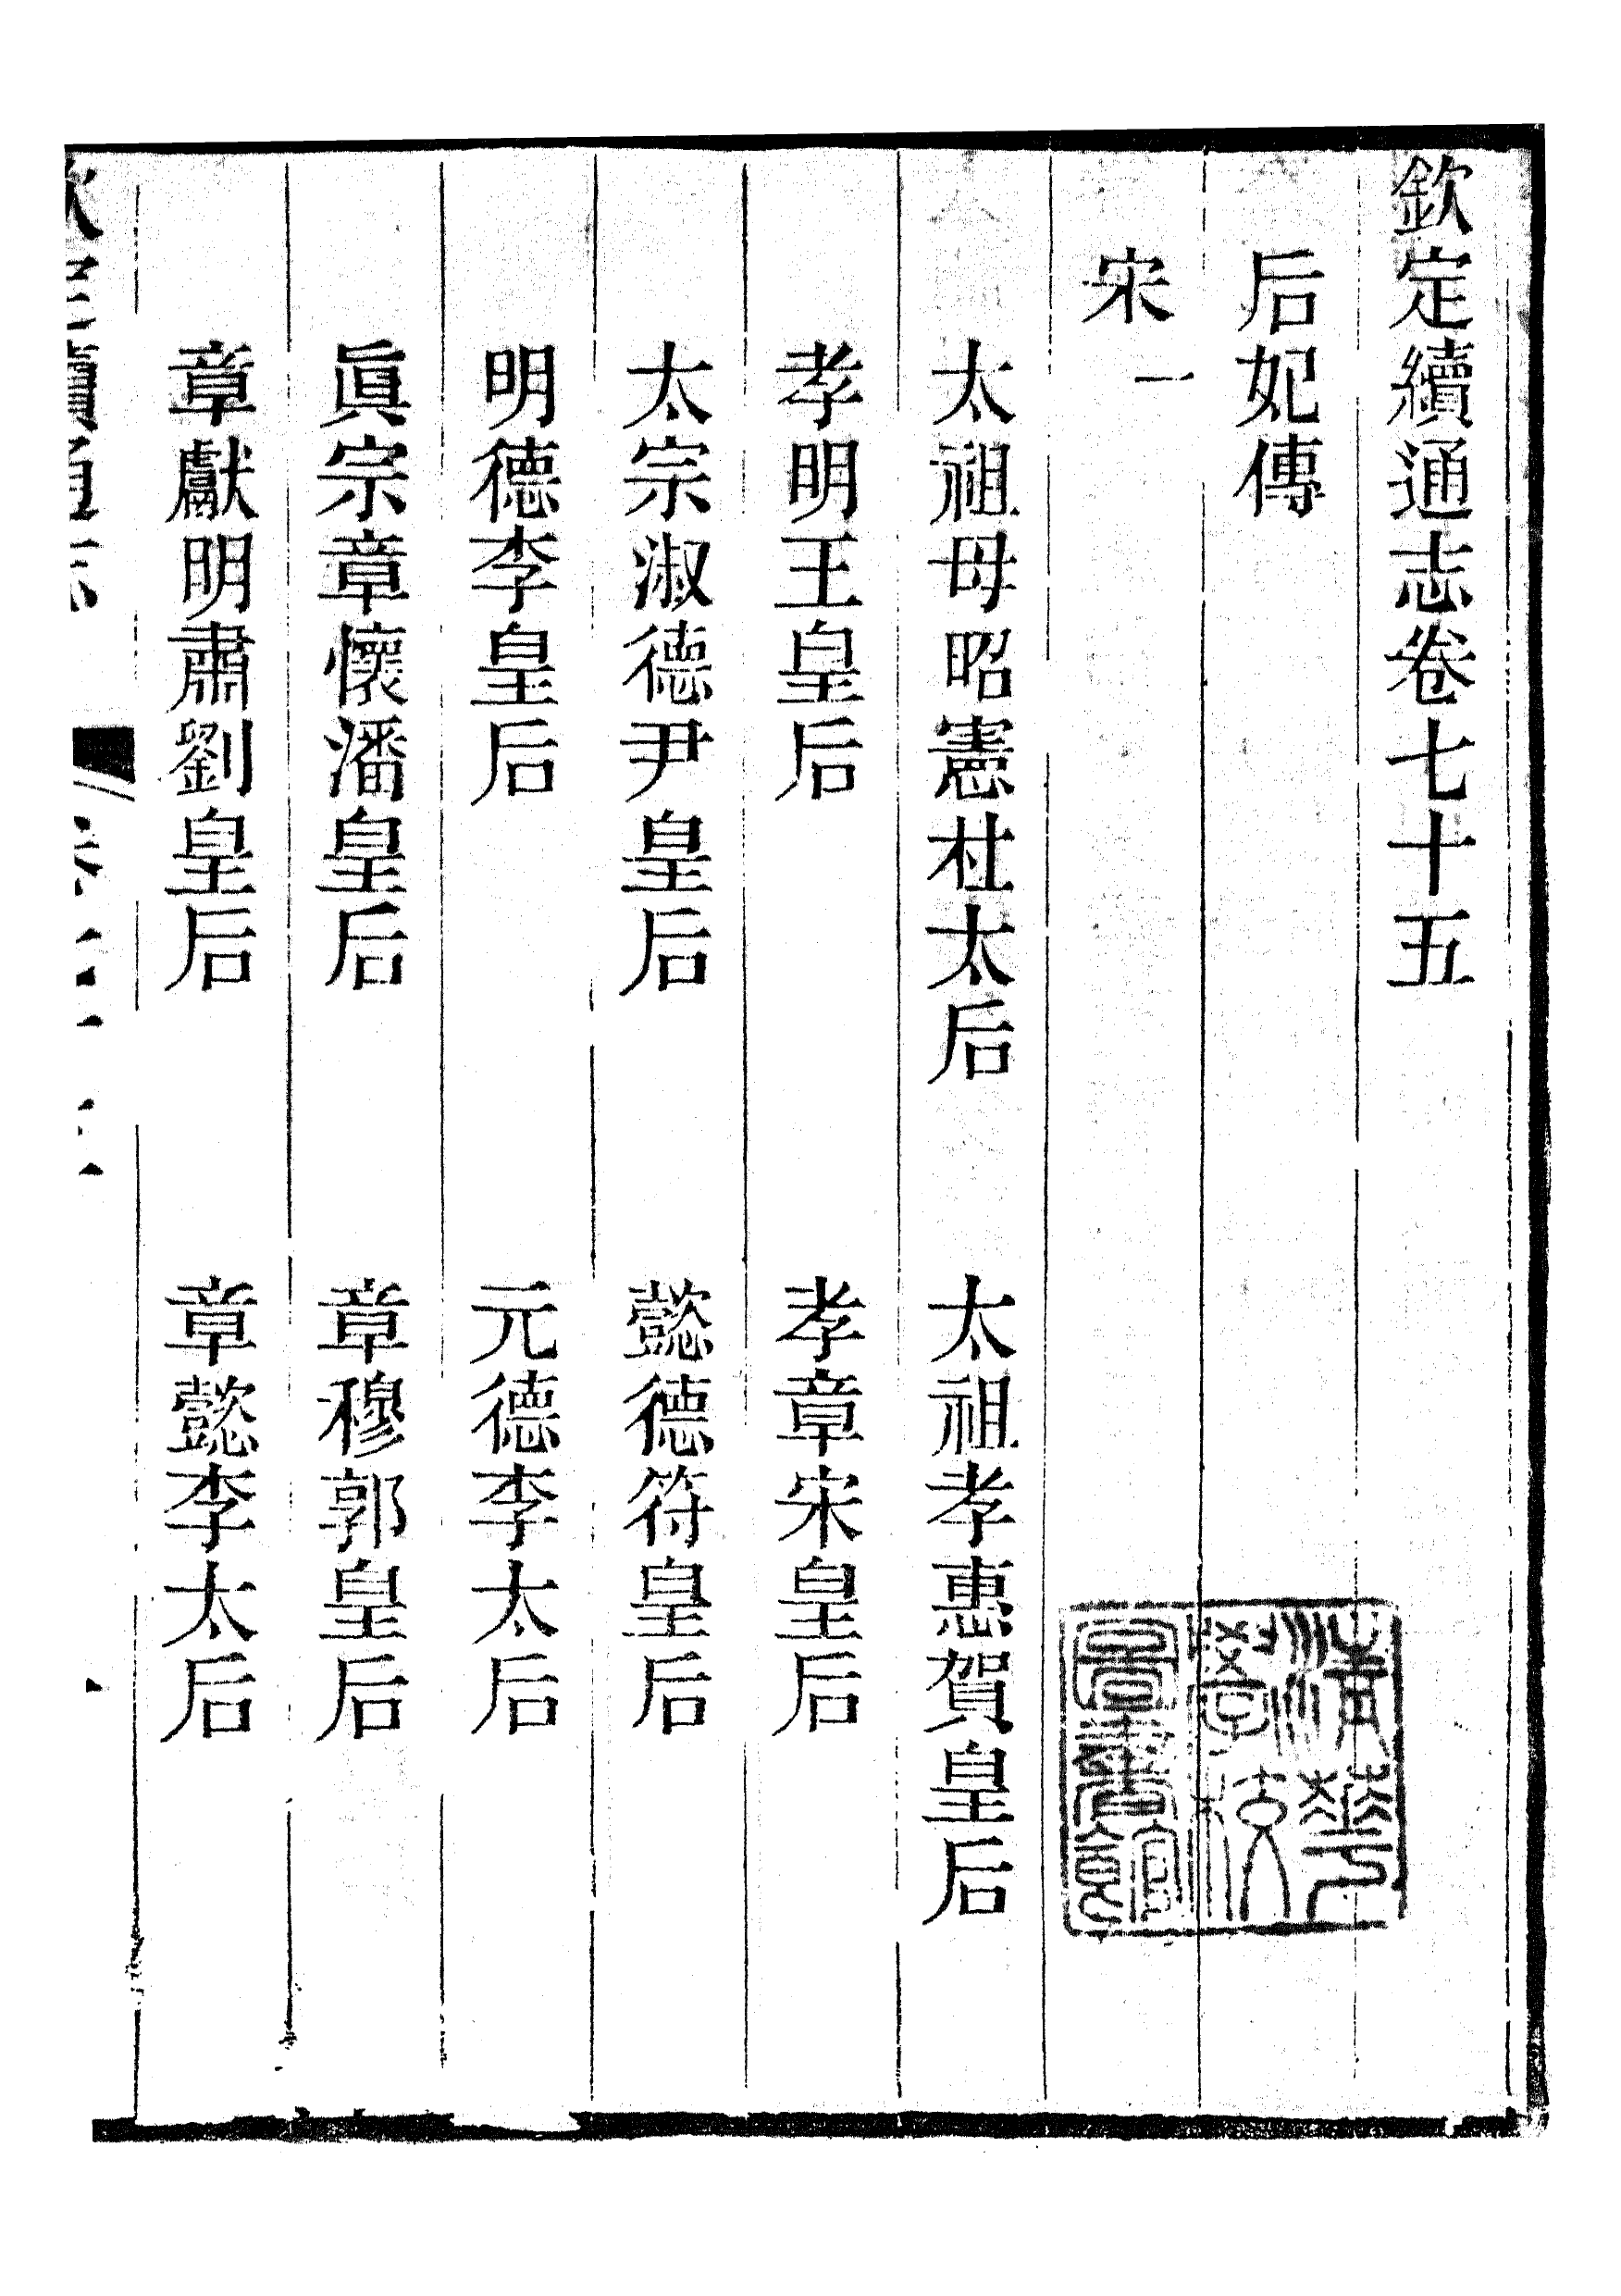 欽定續通志卷七十五
后妃傳
宋一
太祖母昭憲杜太后 太祖孝惠賀皇后
孝明王皇后 孝章宋皇后
太宗淑德尹皇后 懿德符皇后
明德李皇后 元德李太后
眞宗章懷潘皇后 章穆郭皇后
章獻明肅劉皇后 章懿李太后
清華學校